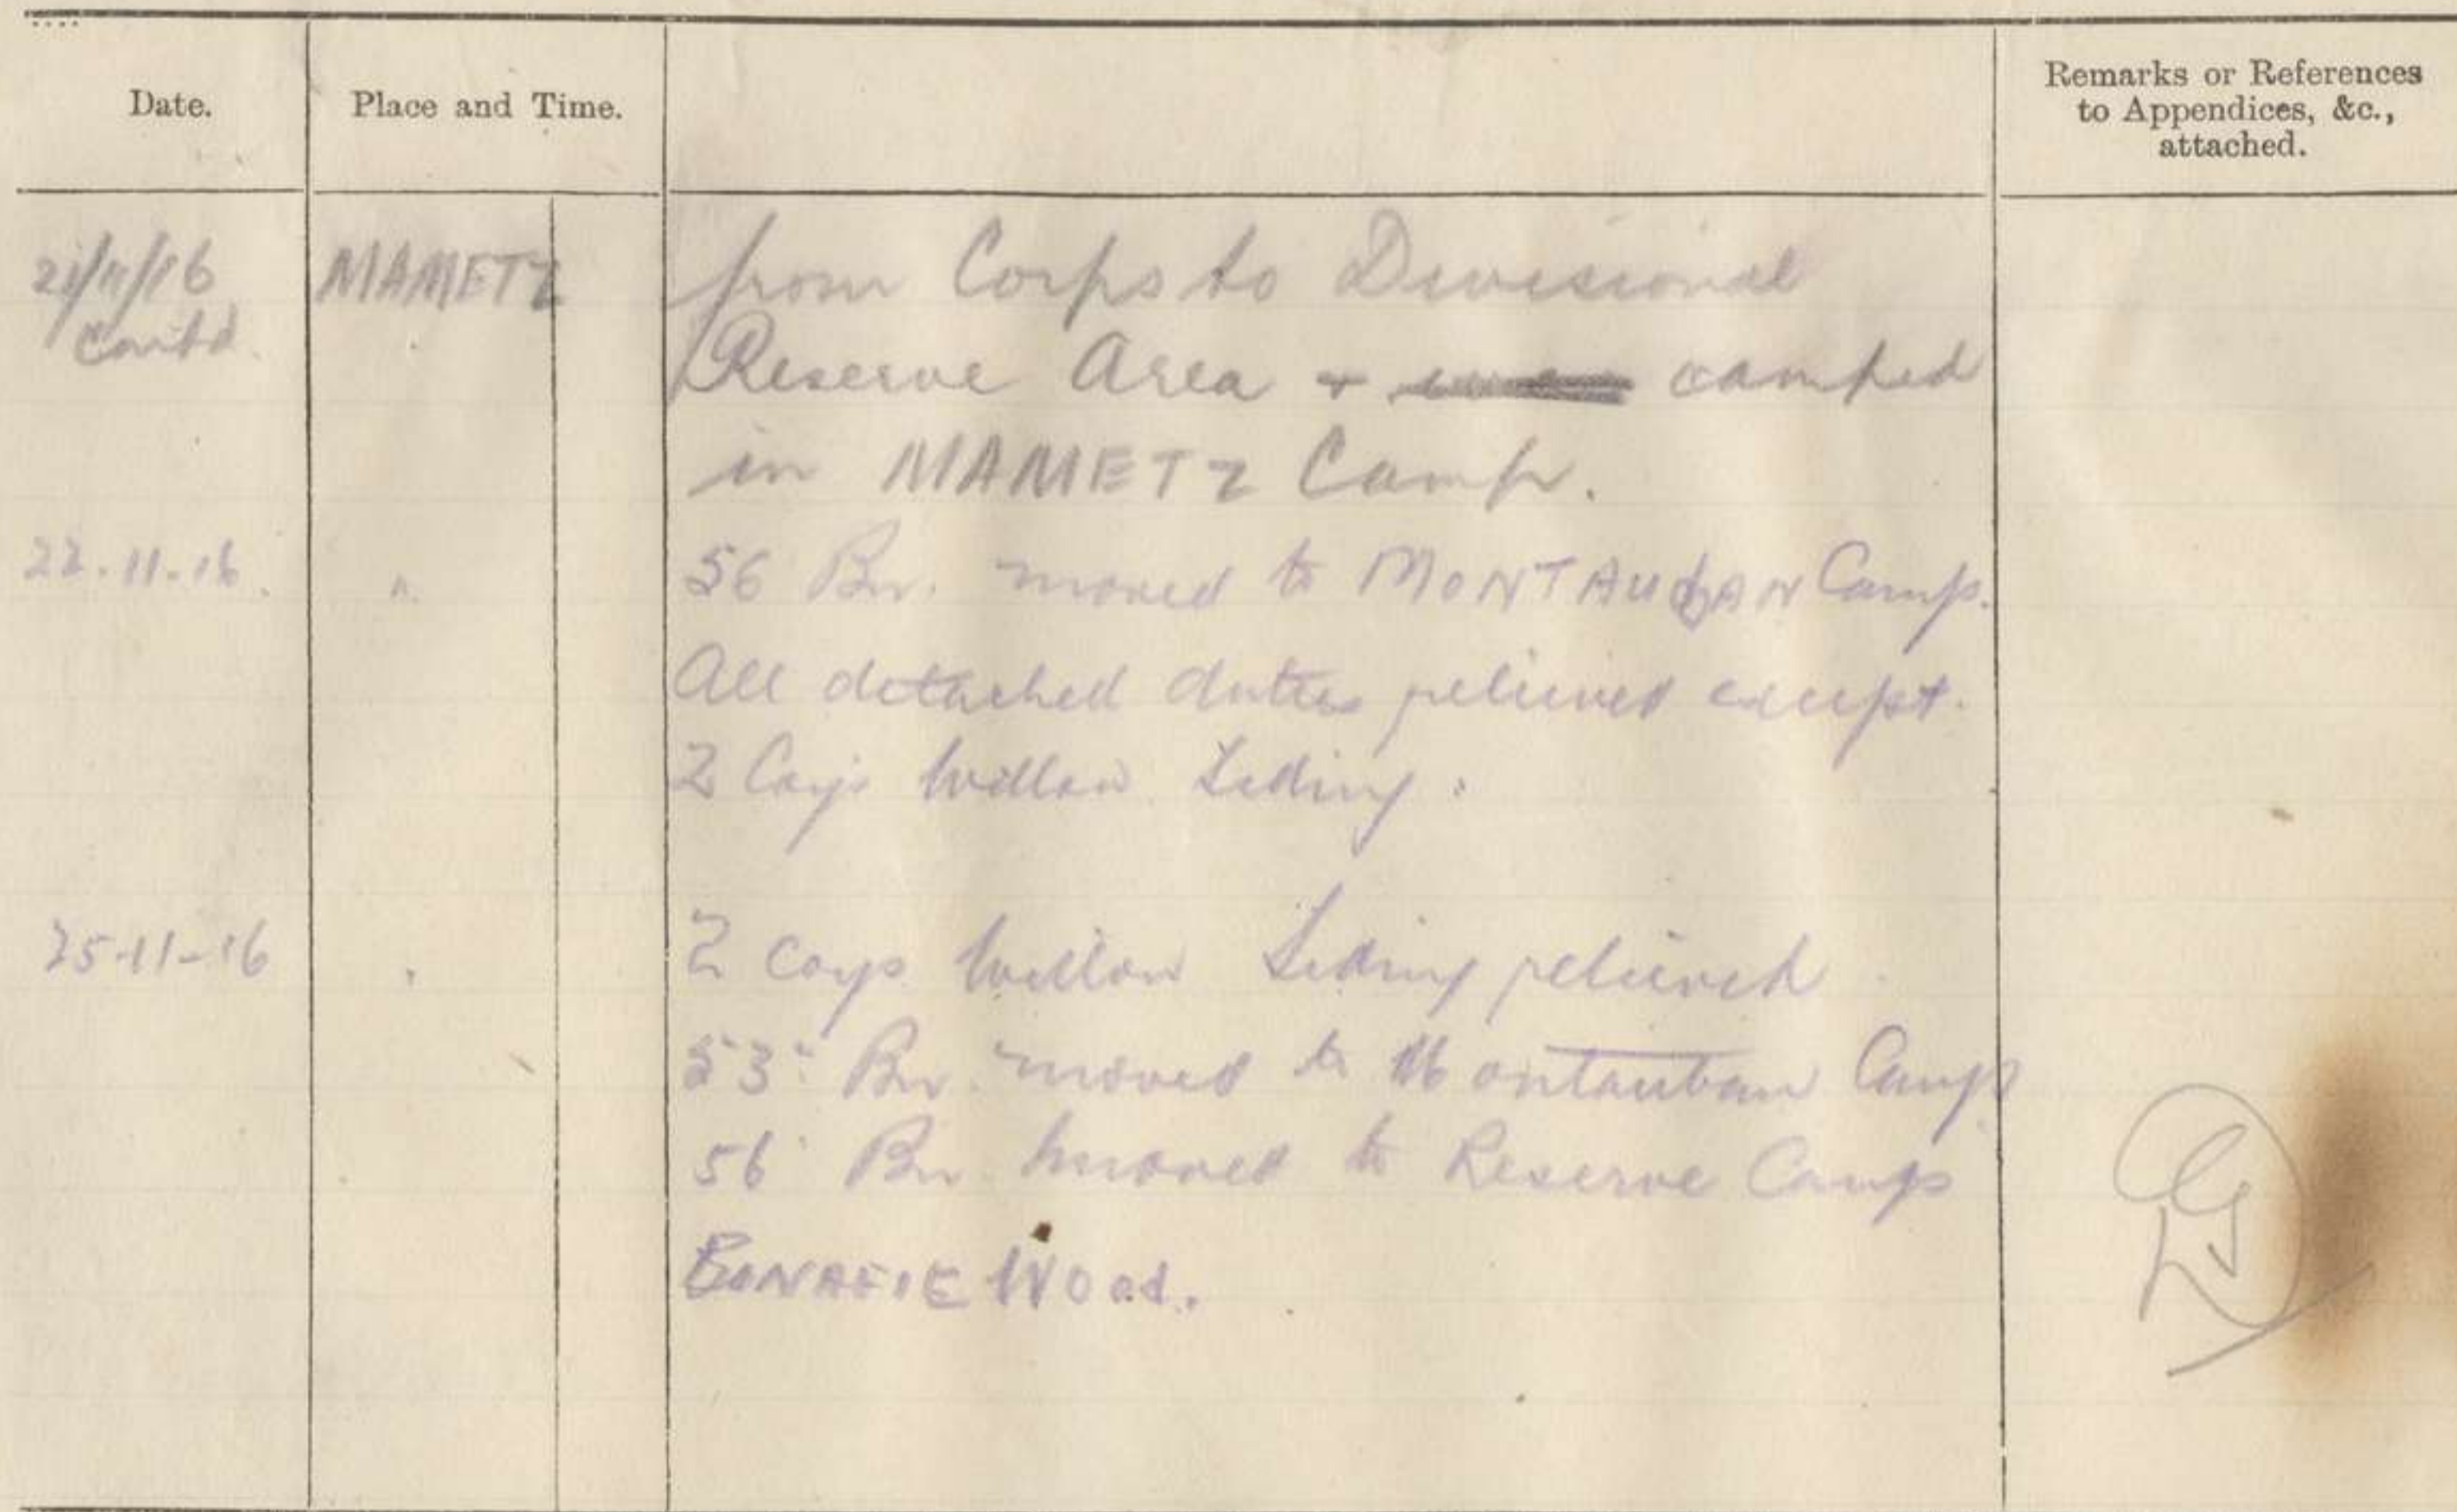 Date.
Place and Time.
Remarks or References
to Appendices, &c.,
attached.
21/11/16 MAMETZ from Corps to Divisional
Contd. Reserve Area + camped
in MAMETZ Camp.
22.11.16. " 56 Bn. moved to MONTAUBAN Camp.
All detached duties relieved except.
2 Coys Willow Siding.
25-11-16 " 2 Coys Willow Siding relieved
53" Bn. moved to Montauban Camp
56 Bn moved to Reserve Camp
BONAFIE Wood.